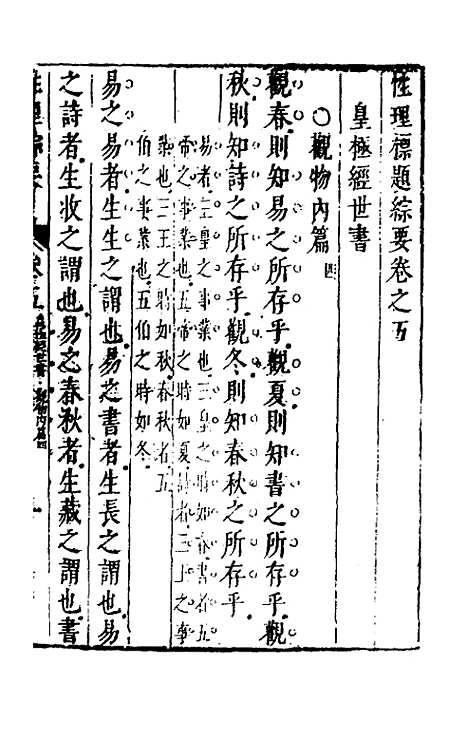 性理標題綜要卷之五
皇極經世書
○觀物內篇四
觀春則知易之所存乎觀夏則知書之所存乎觀
秋則知詩之所存乎觀冬則知春秋之所存乎
易者三皇之事業也三皇之時如春書者五
帝之事業也五帝之時如夏詩者三王之事
業也三王之時如秋春秋者五
伯之事業也五伯之時如冬
易之易者生生之謂也易之書者生長之謂也易
之詩者生收之謂也易之春秋者生藏之謂也書
性理綜要 卷五 皇極經世書 觀物內篇四